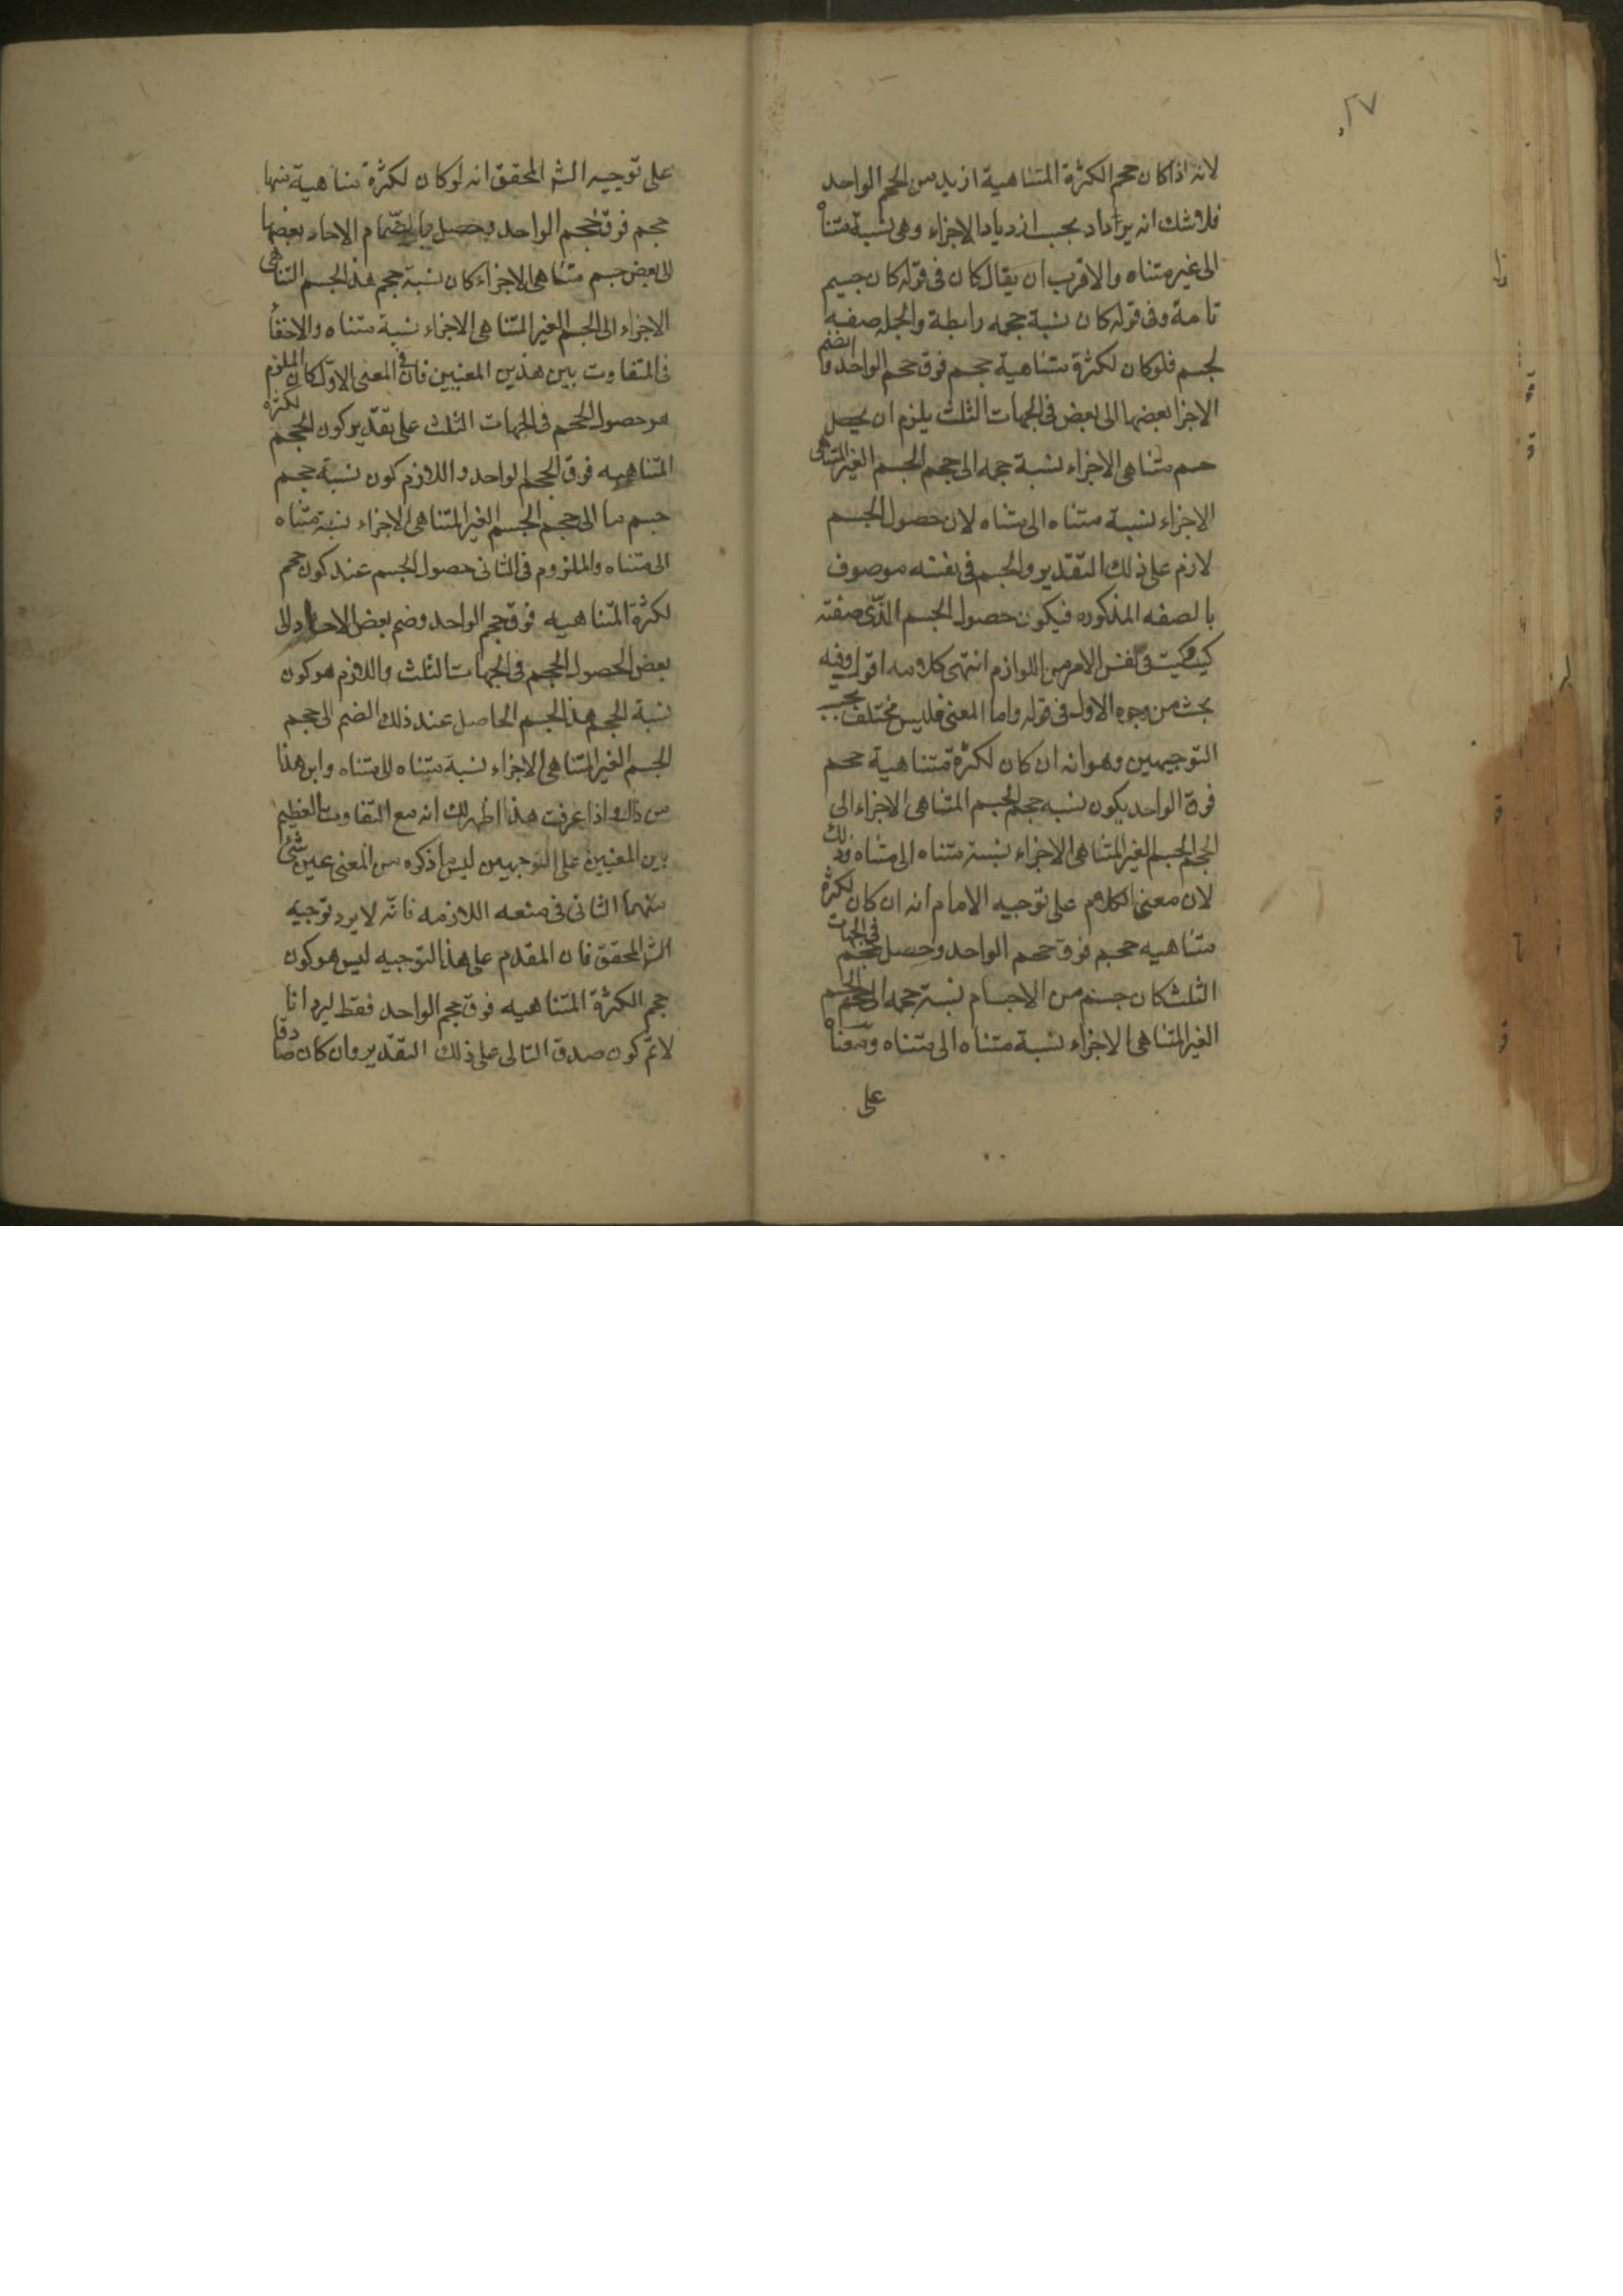 ٢٧
لانه اذا كان حجم الكثرة المتناهية ازيد من الحجم الواحد
فلا شك انه يزداد بحسب ازدياد الاجزاء وهى نسبة متناه
الى غير متناه والاقرب ان يقال كان فى قوله كان جسم
تامة وفى قوله كان نسبة حجمه رابطة والجمله صفة
لجسم فلو كان لكثرة متناهية حجم فوق حجم الواحد وانضم
الاجزا بعضها الى بعض فى الجهات الثلث يلزم ان يحصل
جسم متناهى الاجزاء نسبة حجمه الى حجم الجسم الغير المتناهى
الاجزاء نسبة متناه الى متناه لان حصول الجسم
لازم على ذلك التقدير والجسم فى نفسه موصوف
بالصفه المذكوره فيكون حصول الجسم الذى صفته
كيت وكيت فى نفس الامر من اللوازم انتهى كلامه اقول وفيه
بحث من وجوه الاول فى قوله واما المعنى فليس مختلف بحسب
التوجيهين وهو انه ان كان لكثرة متناهية حجم
فوق الواحد يكون نسبه حجم الجسم المتناهى الاجزاء الى
الحجم الجسم الغير المتناهى الاجزاء نسبة متناه الى متناه وذلك
لان معنى الكلام على توجيه الامام انه ان كان لكثرة
متناهيه حجم فوق حجم الواحد وحصل حجم فى الجهات
الثلث كان جسم من الاجسام نسبة حجمه الى حجم الجسم
الغير المتناهى الاجزاء نسبة متناه الى متناه
على
على توجيه الش المحقق انه لو كان لكثرة متناهية منها
حجم فوق حجم الواحد وحصل بانضمام الاحاد بعضها
الى بعض جسم متناهى الاجزاء كان نسبة حجم هذا الجسم المتناهى
الاجزاء الى الجسم الغير المتناهى الاجزاء نسبة متناه والاخفأ
فى التفاوت بين هذين المعنيين فان فى المعنى الاول كان الملزوم
هو حصول الحجم فى الجهات الثلث على تقدير كون الحجم لكثرة
المتناهيه فوق الحجم الواحد واللازم كون نسبة حجم
جسم ما الى حجم الجسم الغير المتناهى الاجزاء نسبة متناه
الى متناه والملزوم فى الثانى حصول الجسم عند كون حجم
لكثرة المتناهيه فوق حجم الواحد وضم بعض الاحاد الى
بعض لحصول الحجم فى الجهات الثلث واللازم هو كون
نسبة الحجم هذا الجسم الحاصل عند ذلك الضم الى حجم
الجسم الغير المتناهى الاجزاء نسبة متناه الى متناه واين هذا
من ذاك واذا عرفت هذا اظهر لك انه مع التفاوت العظيم
بين المعنيين على التوجيهين ليس ما ذكره من المعنى عين شئ
منهما الثانى فى منعه اللازمه فانه لا يرد توجيه
الش المحقق فان المقدم على هذا التوجيه ليس هو كون
حجم الكثرة المتناهيه فوق حجم الواحد فقط ليرد انا
لانم كون صدق التالى على ذلك التقدير وان كان صادقا